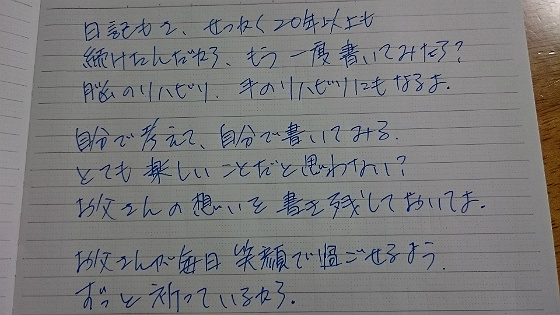 日記もさ、せっかく20年以上も
続けたんだから、もう一度書いてみたら？
脳のリハビリ、手のリハビリにもなるよ。
自分で考えて、自分で書いてみる。
とても楽しいことだと思わない？
お父さんの想いを書き残しておいてよ。
お父さんが毎日笑顔で過ごせるよう、
ずっと祈っているから。